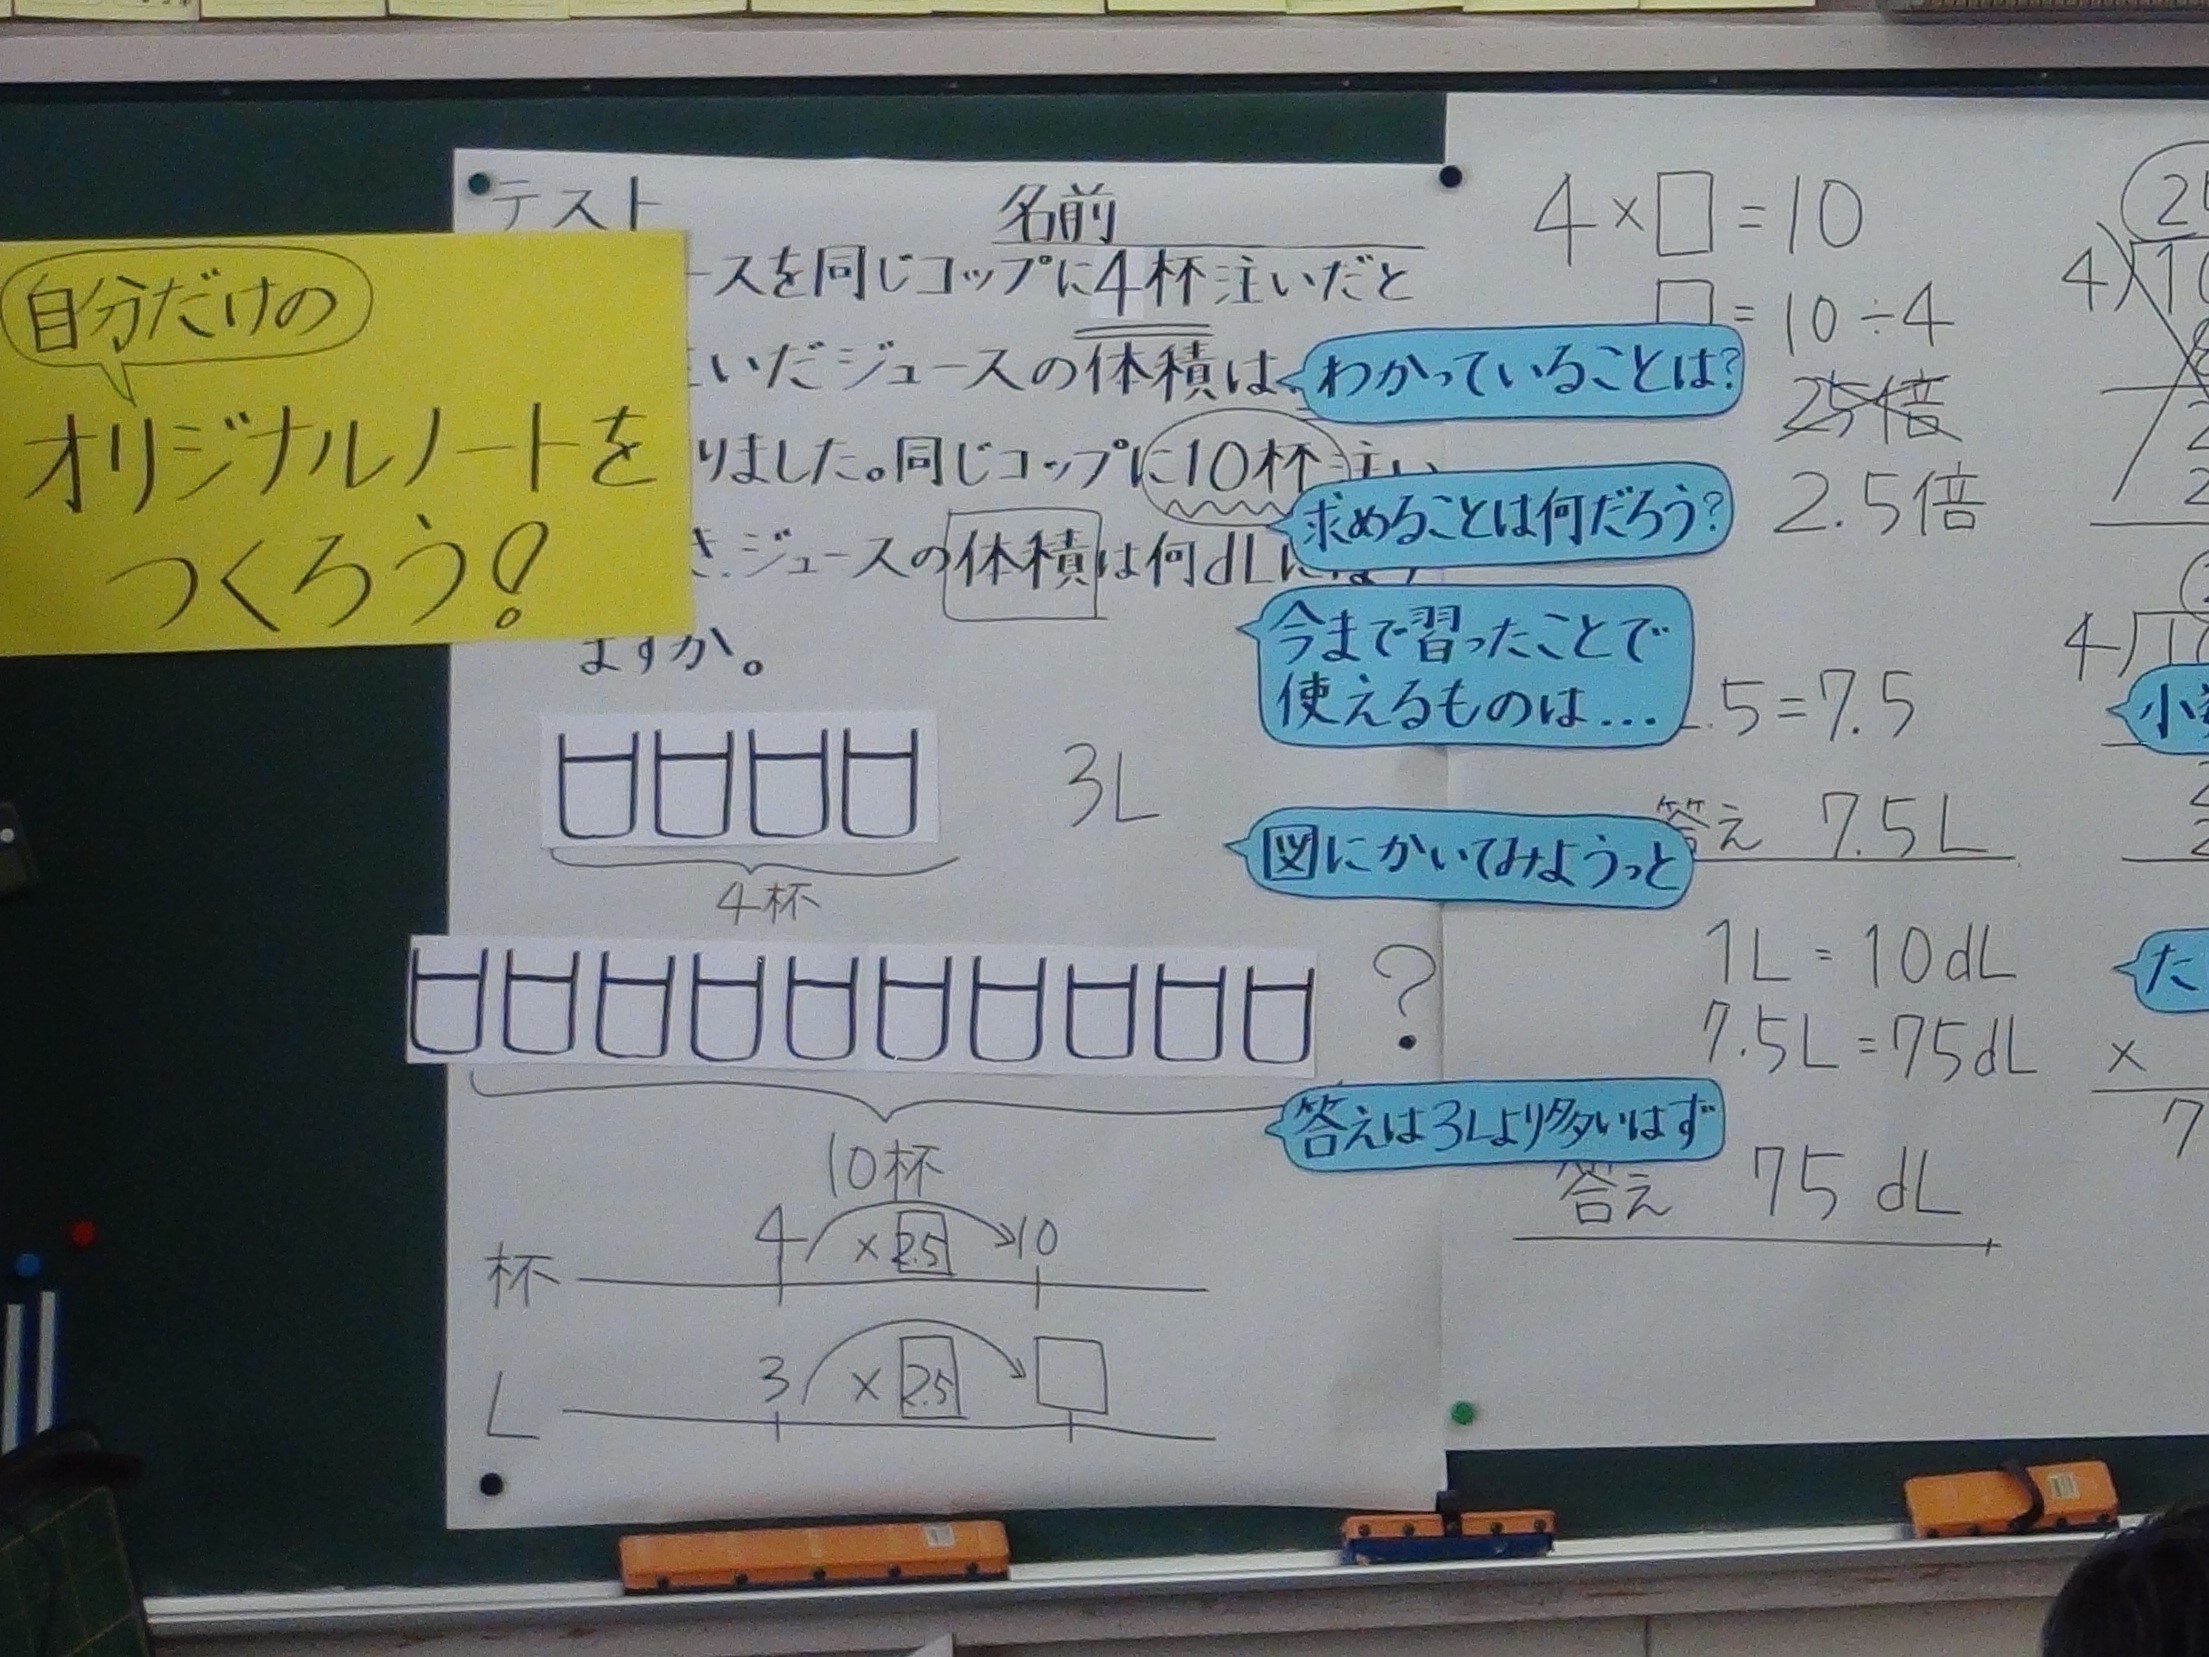 自分だけの
オリジナルノートを
つくろう!
テスト 名前
ースを同じコップに4杯注いだと
いだジュースの体積は
りました。同じコップに10杯注い
き.ジュースの体積は何dLに
ますか。
3L
4杯
?
10杯
4 × 2.5 10
杯
3 × 2.5 □
L
わかっていることは?
求めることは何だろう?
今まで習ったことで
使えるものは...
図にかいてみようっと
答えは3Lより多いはず
4×□=10
□=10÷4
25倍
2.5倍
.5=7.5
答え 7.5L
1L=10dL
7.5L=75dL
答え 75dL
4)10
4)10
小
た
×
7